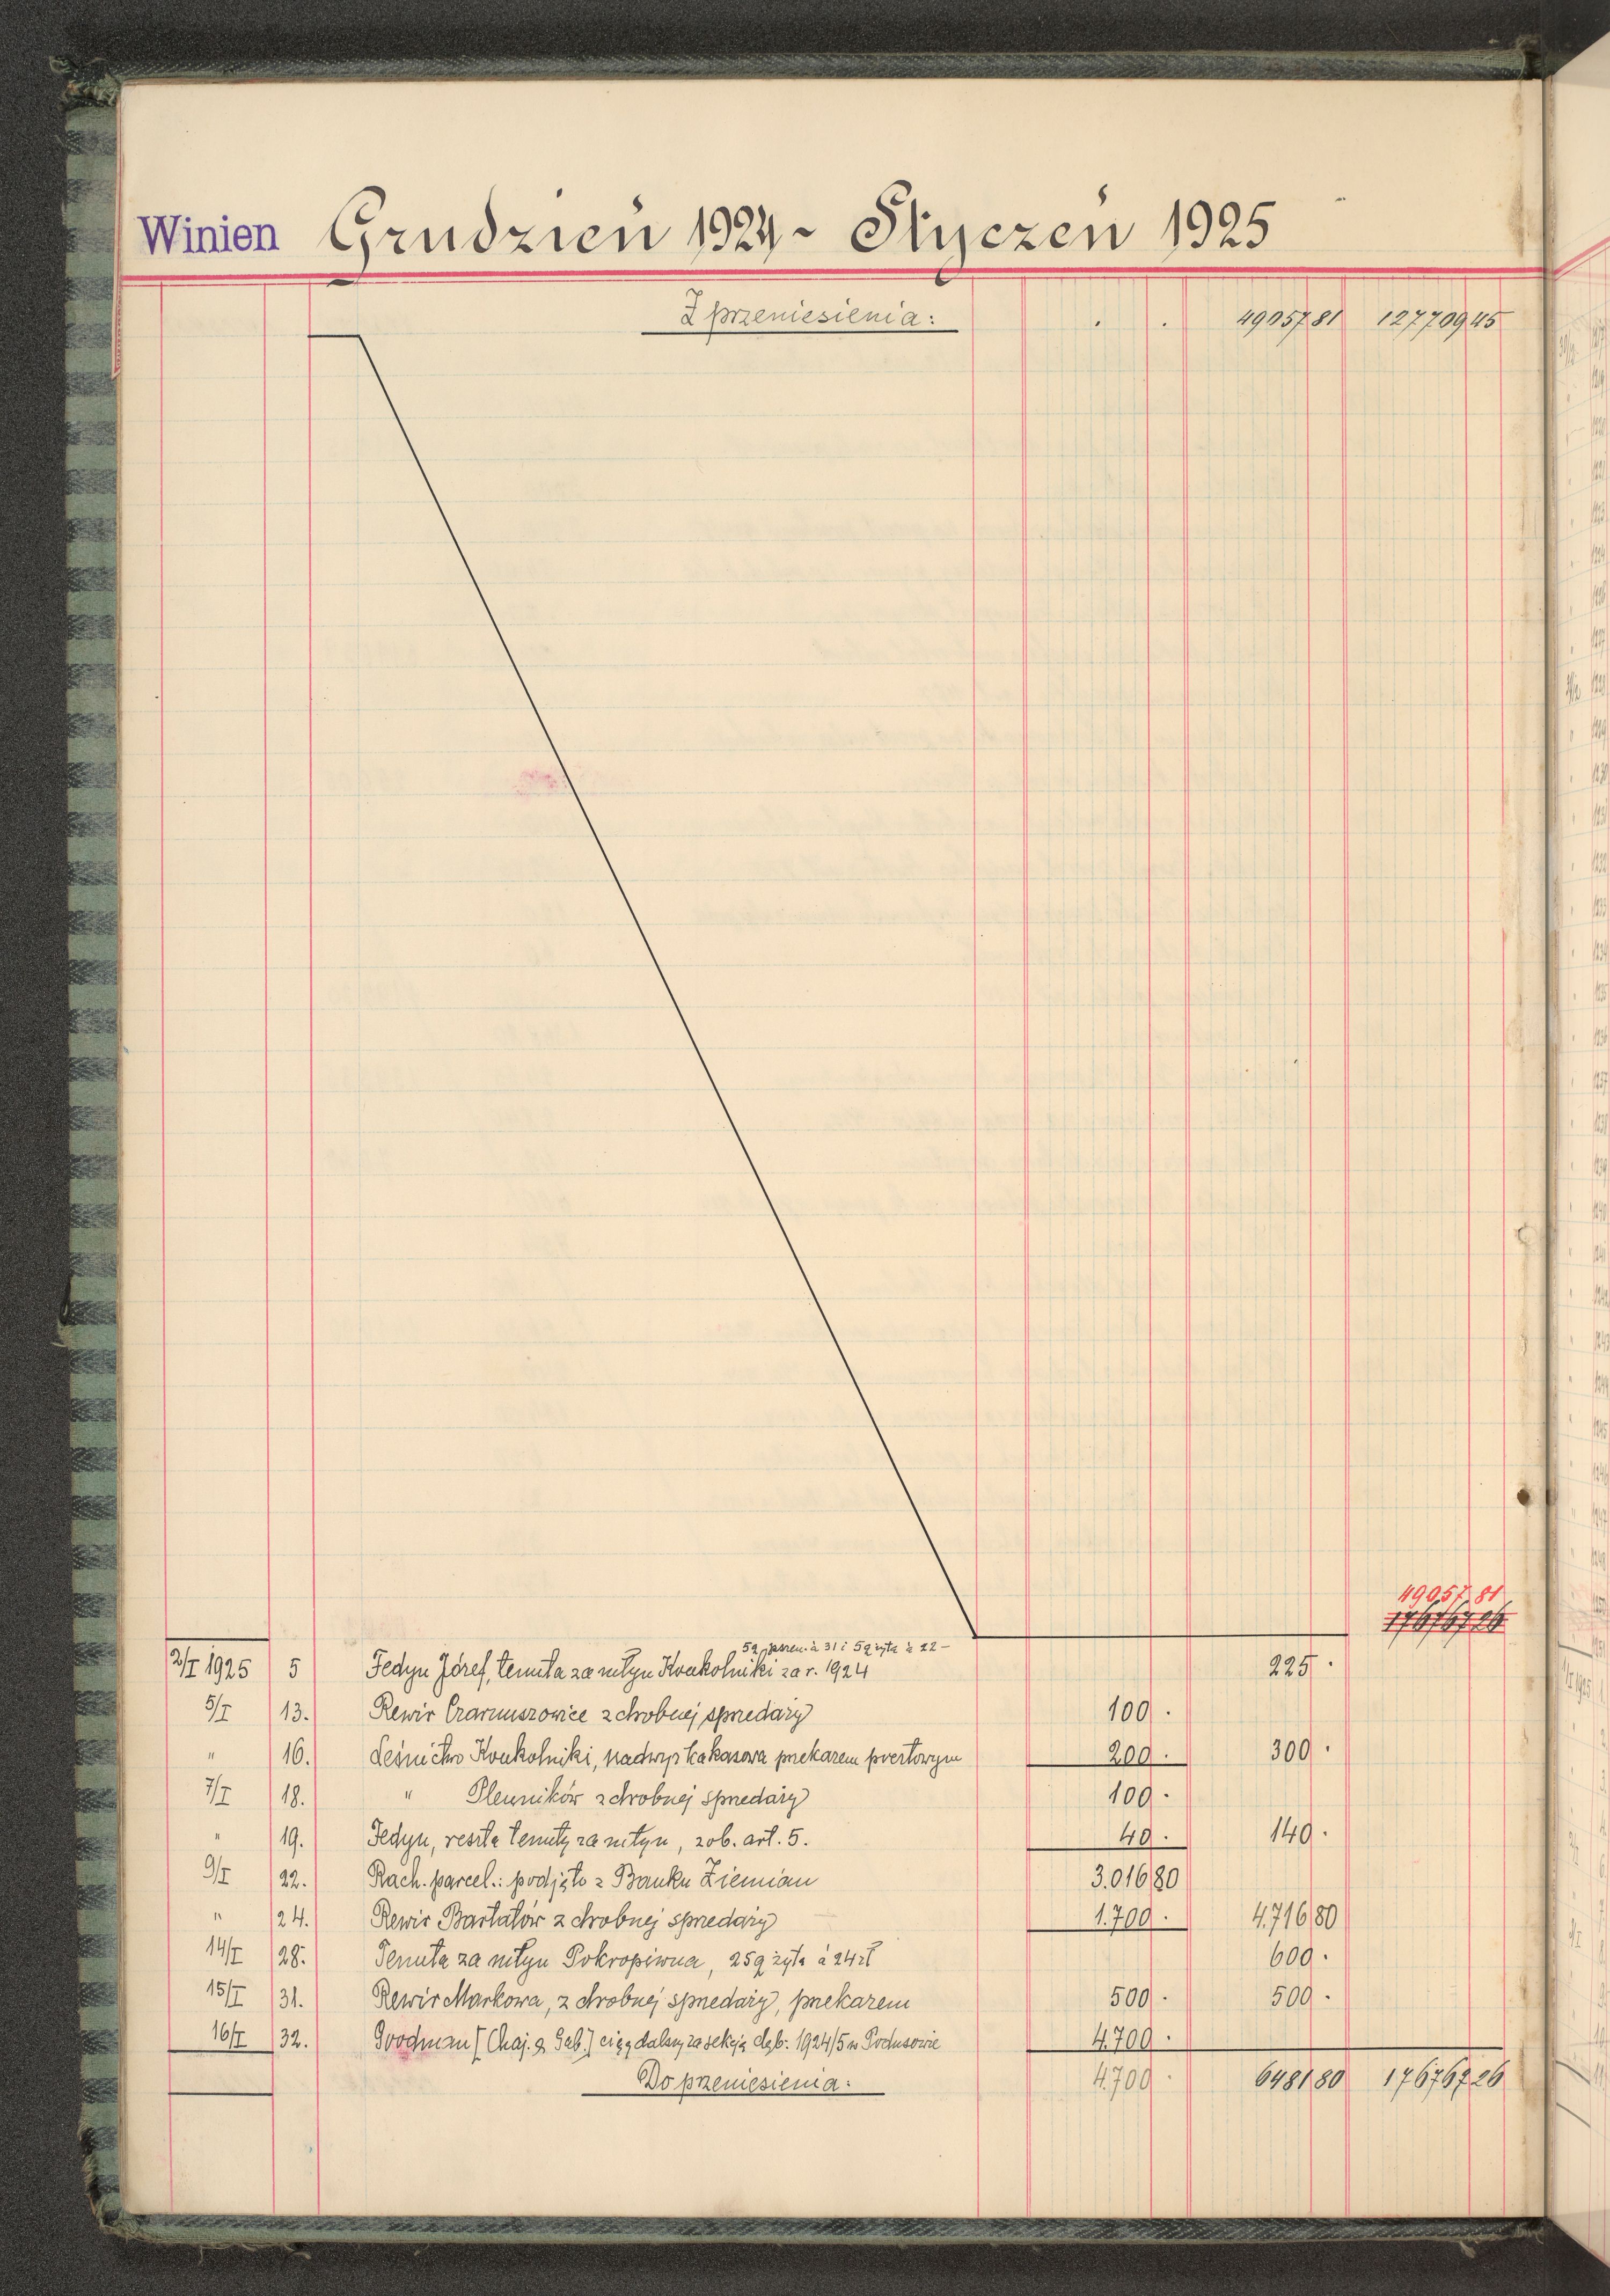 Winien Grudzień 1924 - Styczeń 1925
Z przeniesienia: . . 49057 81 127709 45
49057 81
176767 26
5q pszen. à 31 i 5q żyta à 22-
2/I 1925 5 Fedyn Józef, tenuta za młyn Konkolniki za r. 1924 225 .
5/I 13. Rewir Czarnuszowice z drobnej sprzedaży 100 .
" 16. Leśnictwo Konkolniki, nadwyżka kasowa przekazem 200 . 300 .
7/I 18. " Plenników z drobnej sprzedaży 100 .
" 19. Fedyn, reszta tenuty za młyn, zob. art. 5. 40 . 140 .
9/I 22. Rach. parcel.: podjęto z Banku Ziemian 3.016 80
" 24. Rewir Bartatów z drobnej sprzedaży 1.700 . 4.716 80
14/I 28. Tenuta za młyn Pokropiwna, 25q żyta à 24 zł 600 .
15/I 31. Rewir Markowa, z drobnej sprzedaży, przekazem 500 . 500 .
16/I 32. Goodman (Chaj. & Geb.) ciąg dalszy za sekcję dęb. 1924/5 w Podusowie 4.700 .
Do przeniesienia: 4.700 . 6481 80 176767 26